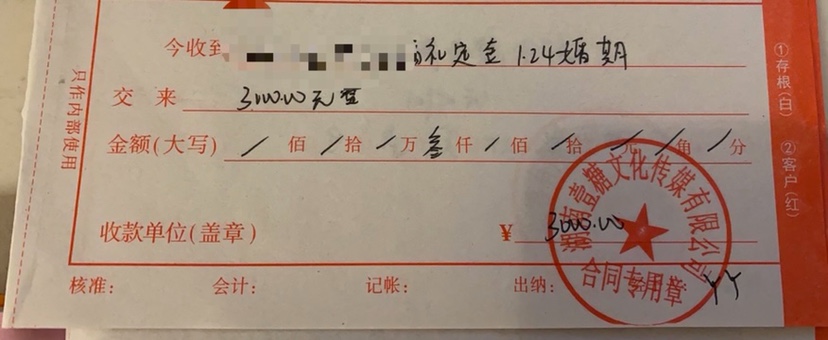 今收到 礼定金 1.24婚期
交来 3000.00元整
金额(大写) / 佰 / 拾 / 万 叁 仟 / 佰 / 拾 / 元 / 角 / 分
收款单位(盖章) ¥ 3000.00
核准: 会计: 记帐: 出纳:
只作内部使用
①存根(白) ②客户(红)
湖南壹糖文化传媒有限公司
合同专用章